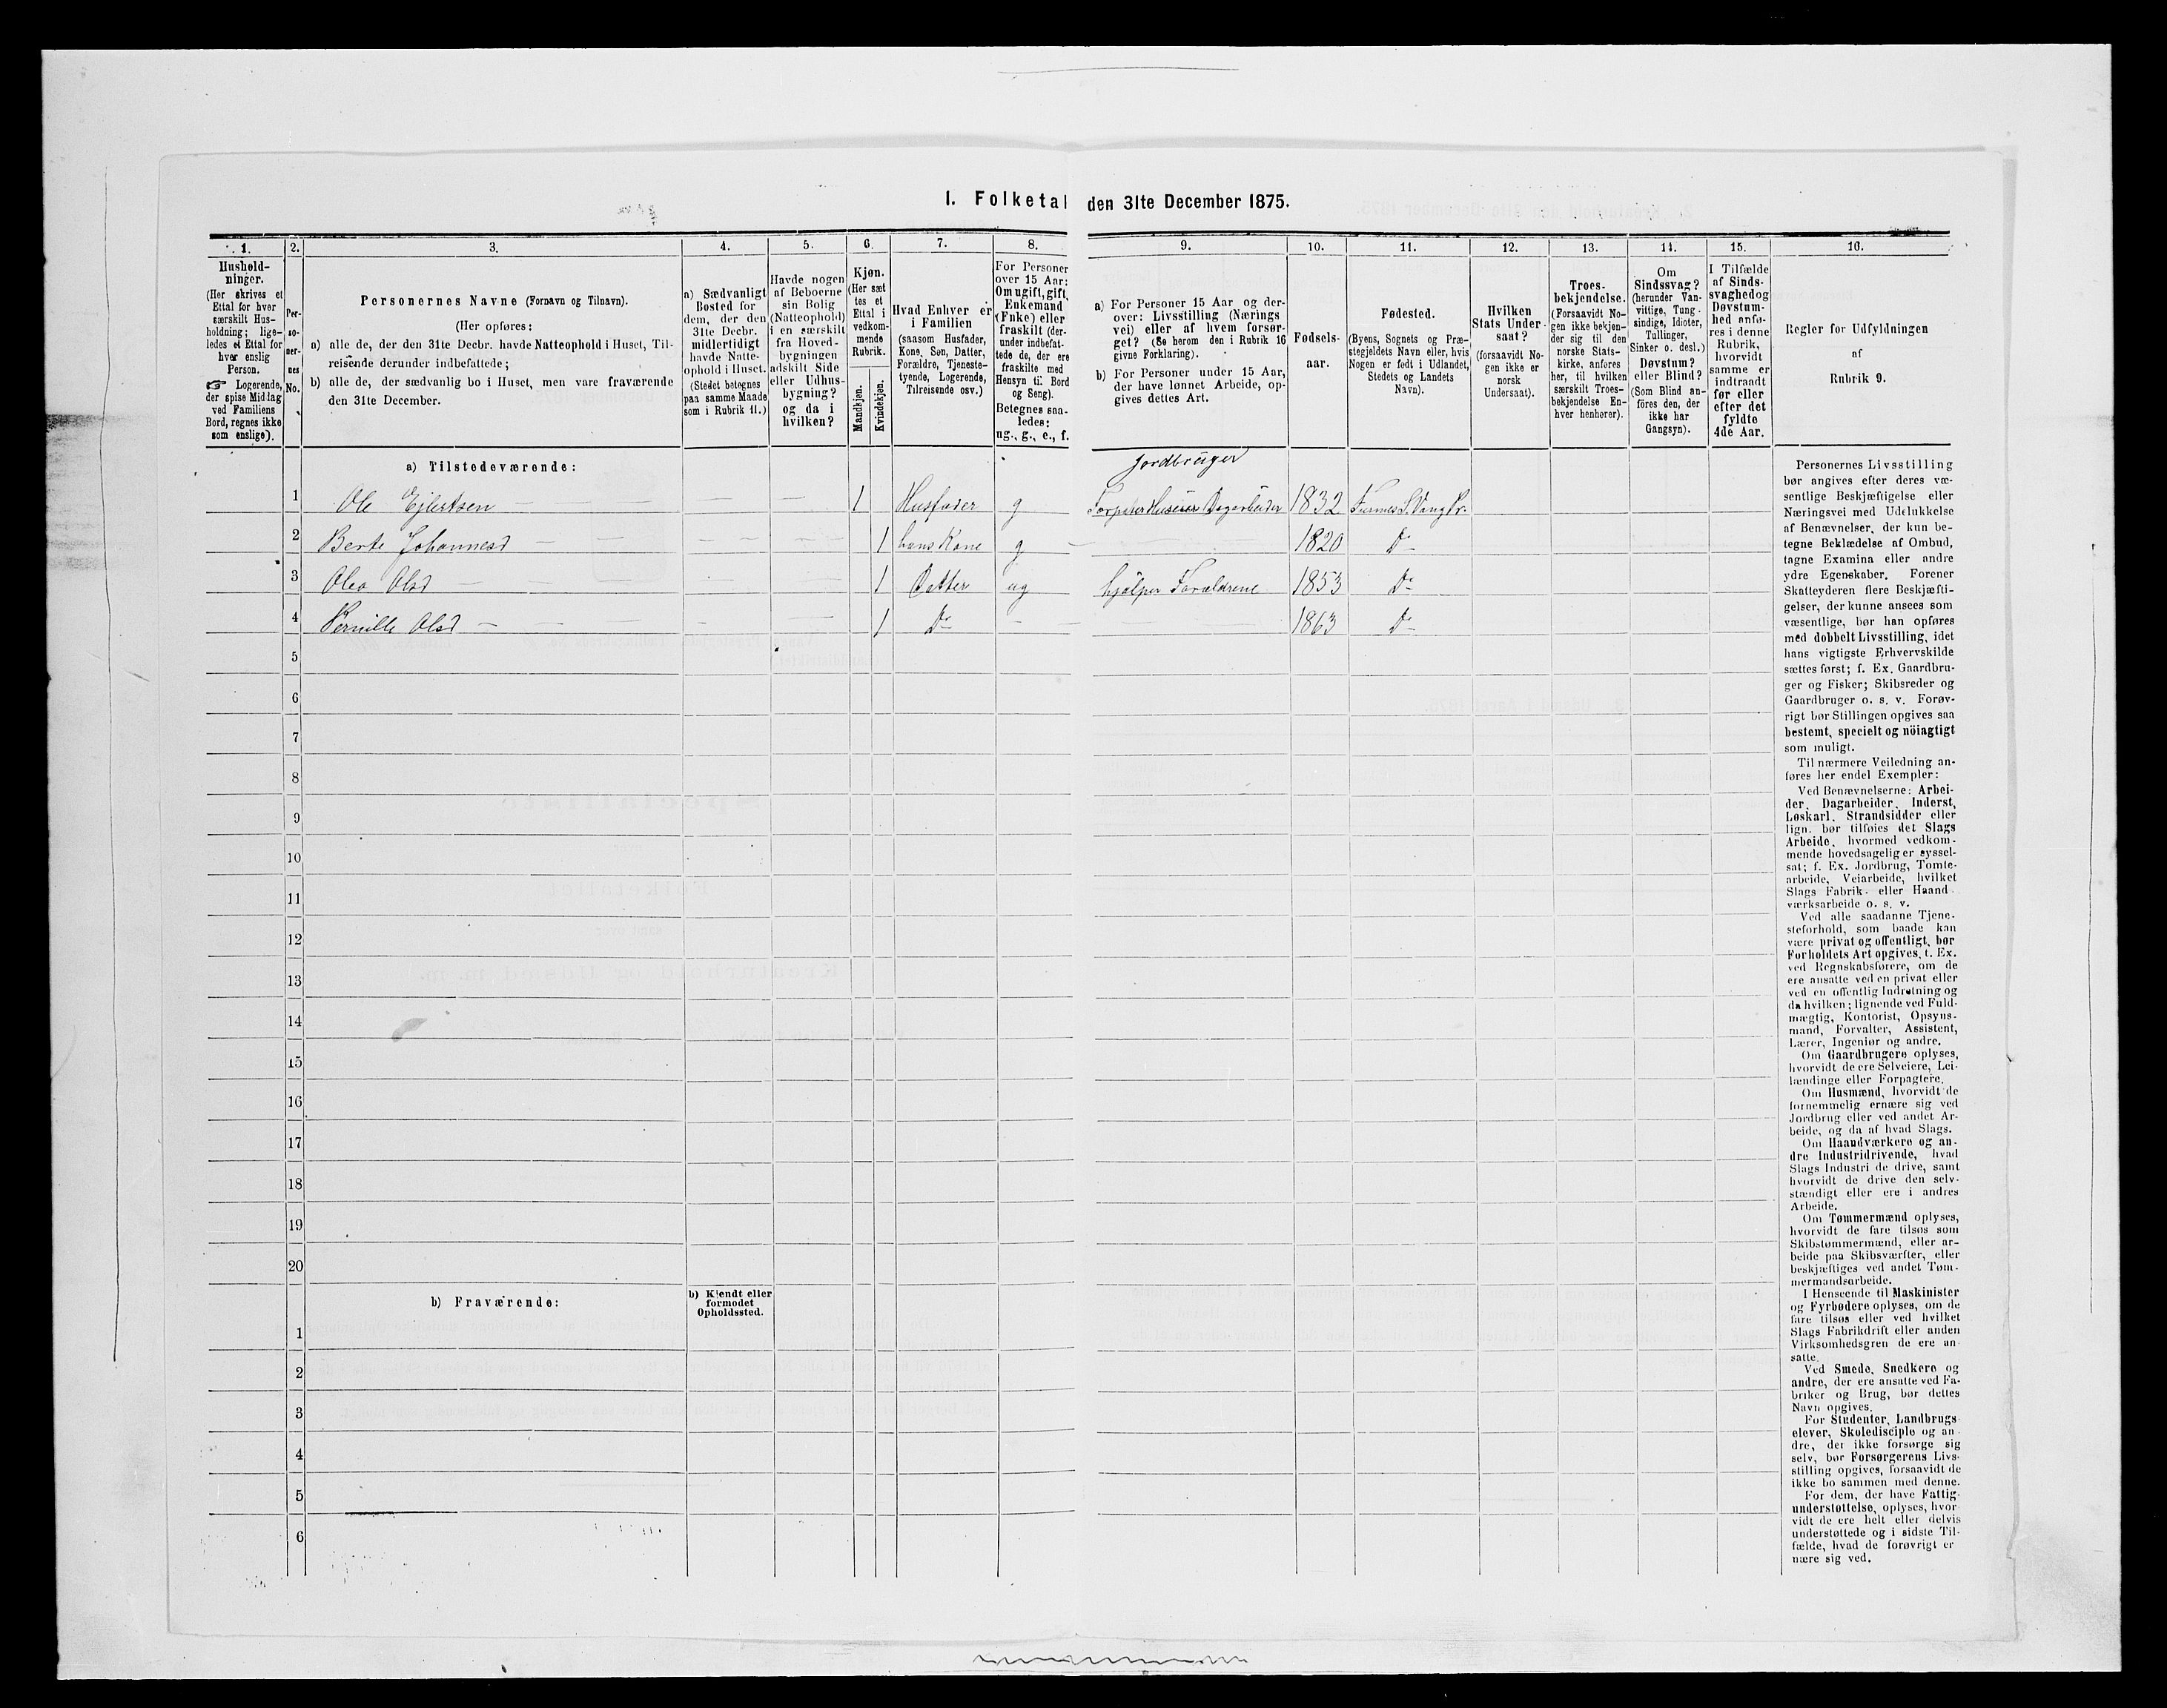 I. Folketal den 31te December 1875.
1. 2. 3. 4. 5. 6. 7. 8. 9. 10. 11. 12. 13. 14. 15. 16.
Hushold-
ninger.
(Her skrives et
Ettal for hver
særskilt Hus-
holdning; lige-
ledes et Ettal for
hver enslig
Person.
☞ Logerende,
der spise Middag
ved Familiens
Bord, regnes ikke
som enslige).
Per-
so-
ner-
nes
No.
Personernes Navne (Fornavn og Tilnavn).
(Her opføres:
a) alle de, der den 31te Decbr. havde Natteophold i Huset, Til-
reisende derunder indbefattede;
b) alle de, der sædvanlig bo i Huset, men vare fraværende
den 31te December.
a) Sædvanligt
Bosted for
dem, der den
31te Decbr.
midlertidigt
havde Natte-
ophold i Huset.
(Stedet betegnes
paa samme Maade
som i Rubrik 11.)
Havde nogen
af Beboerne
sin Bolig
(Natteophold)
i en særskilt
fra Hoved-
bygningen
adskilt Side
eller Udhus-
bygning?
og da i
hvilken?
Kjøn.
(Her sæt
tes et
Ettal i
vedkom-
mende
Rubrik.
Mandkjøn.
Kvindekjøn.
Hvad Enhver er
i Familien
(saasom Husfader,
Kone, Søn, Datter,
Forældre, Tjeneste-
tyende, Logerende,
Tilreisende osv.)
For Personer
over 15 Aar:
Om ugift, gift,
Enkemand
(Enke) eller
fraskilt (der-
under indbefat-
tede de, der ere
fraskilte med
Hensyn til Bord
og Seng).
Betegnes saa-
ledes:
ug., g., e., f.
a) For Personer 15 Aar og der-
over: Livsstilling (Nærings
vei) eller af hvem forsør-
get? (Se herom den i Rubrik 16
givne Forklaring).
b) For Personer under 15 Aar,
der have lønnet Arbeide, op-
gives dettes Art.
Fødsels-
aar.
Fødested.
(Byens, Sognets og Præ-
stegjeldets Navn eller, hvis
Nogen er født i Udlandet,
Stedets og Landets
Navn).
Hvilken
Stats Under-
saat?
(forsaavidt No-
gen ikke er
norsk
Undersaat).
Troes-
bekjendelse.
(Forsaavidt No-
gen ikke bekjen-
der sig til den
norske Stats-
kirke, anføres
her, til hvilken
særskilt Troes-
bekjendelse En-
hver henhører).
Om
Sindssvag?
(herunder Van-
vittige, Tung-
sindige, Idioter,
Tullinger,
Sinker o. desl.)
Døvstum?
eller Blind?
(Som Blind an-
føres den, der
ikke har
Gangsyn).
I Tilfælde
af Sinds-
svaghed og
Døvstum-
hed anfø-
res i denne
Rubrik,
hvorvidt
samme er
indtraadt
før eller
efter det
fyldte
4de Aar.
Regler for Udfyldningen
af
Rubrik 9.
a) Tilstedeværende:
Jordbruger
1 Ole Ejlertsen 1 Husfader g Dagarbeider 1832
2 Berte Johannesd 1 hans Kone g 1820 Do
3 Olea Olsd 1 Datter ug hjælper Forældrene 1853 Do
4 Pernille Olsd 1 Do 1863 Do
5
6
7
8
9
10
11
12
13
14
15
16
17
18
19
20
b) Fraværende:
b) Kjendt eller
formodet
Opholdssted.
1
2
3
4
5
6
Personernes Livsstilling
bør angives efter deres væ-
sentlige Beskjæftigelse eller
Næringsvei med Udelukkelse
af Benævnelser, der kun be-
tegne Beklædelse af Ombud,
tagne Examina eller andre
ydre Egenskaber. Forener
Skatteyderen flere Beskjæfti-
gelser, der kunne ansees som
væsentlige, bør han opføres
med dobbelt Livsstilling, idet
hans vigtigste Erhvervskilde
sættes først; f. Ex. Gaardbru-
ger og Fisker; Skibsreder og
Gaardbruger o. s. v. Forøv-
rigt bør Stillingen opgives saa
bestemt, specielt og nöiagtigt
som muligt.
Til nærmere Veiledning an-
føres her endel Exempler:
Ved Benævnelserne: Arbei-
der, Dagarbeider, Inderst,
Løskarl, Strandsidder eller
lign. bør tilføies det Slags
Arbeide, hvormed vedkom-
mende hovedsagelig er syssel-
sat; f. Ex. Jordbrug, Tomte-
arbeide, Veiarbeide, hvilket
Slags Fabrik- eller Haand-
værksarbeide o. s. v.
Ved alle saadanne Tjene-
steforhold, som baade kan
være privat og offentligt, bør
Forholdets Art opgives, f. Ex.
ved Regnskabsførere, om de
ere ansatte ved en privat eller
ved en offentlig Indretning og
da hvilken; lignende ved Fuld-
mægtig, Kontorist, Opsyns-
mand, Forvalter, Assistent,
Lærer, Ingeniør og andre.
Om Gaardbrugere oplyses,
hvorvidt de ere Selveiere, Lei-
lændinge eller Forpagtere.
Om Husmænd, hvorvidt de
fornemmelig ernære sig ved
Jordbrug eller ved andet Ar-
beide, og da af hvad Slags.
Om Haandværkere og an-
dre Industridrivende, hvad
Slags Industri de drive, samt
hvorvidt de drive den selv-
stændigt eller ere i andres
Arbeide.
Om Tømmermænd oplyses,
hvorvidt de fare tilsøs som
Skibstømmermænd, eller ar-
beide paa Skibsværfter, eller
beskjæftiges ved andet Tøm-
mermandsarbeide.
I Henseende til Maskinister
og Fyrbødere oplyses, om de
fare tilsøs eller ved hvilket
Slags Fabrikdrift eller anden
Virksomhedsgren de ere an-
satte.
Ved Smede, Snedkere og
andre, der ere ansatte ved Fa-
briker og Brug, bør dettes
Navn opgives.
For Studenter, Landbrugs-
elever, Skoledisciple og an-
dre, der ikke forsørge sig
selv, bør Forsørgerens Livs-
stilling opgives, forsaavidt de
ikke bo sammen med denne.
For dem, der have Fattig-
understøttelse, oplyses, hvor-
vidt de ere helt eller delvis
understøttede og i sidste Til-
fælde, hvad de forøvrigt er-
nære sig ved.